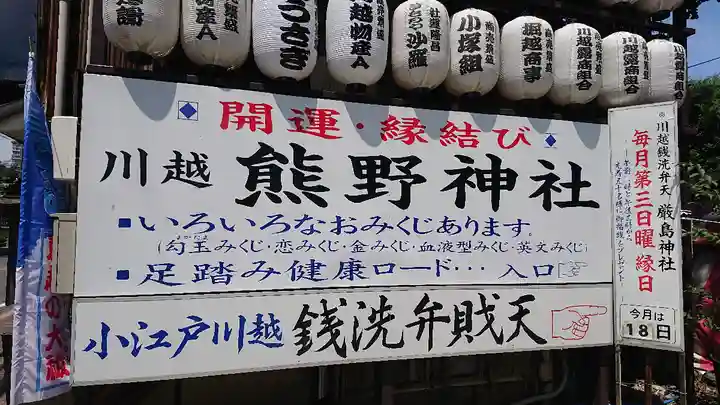 うさぎ
川越物産A
沙羅
南売繁盛
小塚組
堀越商事
川越露商組合
川越露商組合
開運・縁結び
川越 熊野神社
■いろいろなおみくじあります。
(勾玉みくじ・恋みくじ・金みくじ・血液型みくじ・英文みくじ)
■足踏み健康ロード・・・入口☞
小江戸川越 銭洗弁財天
川越銭洗弁天 厳島神社
毎月第三日曜縁日
今月は
18日